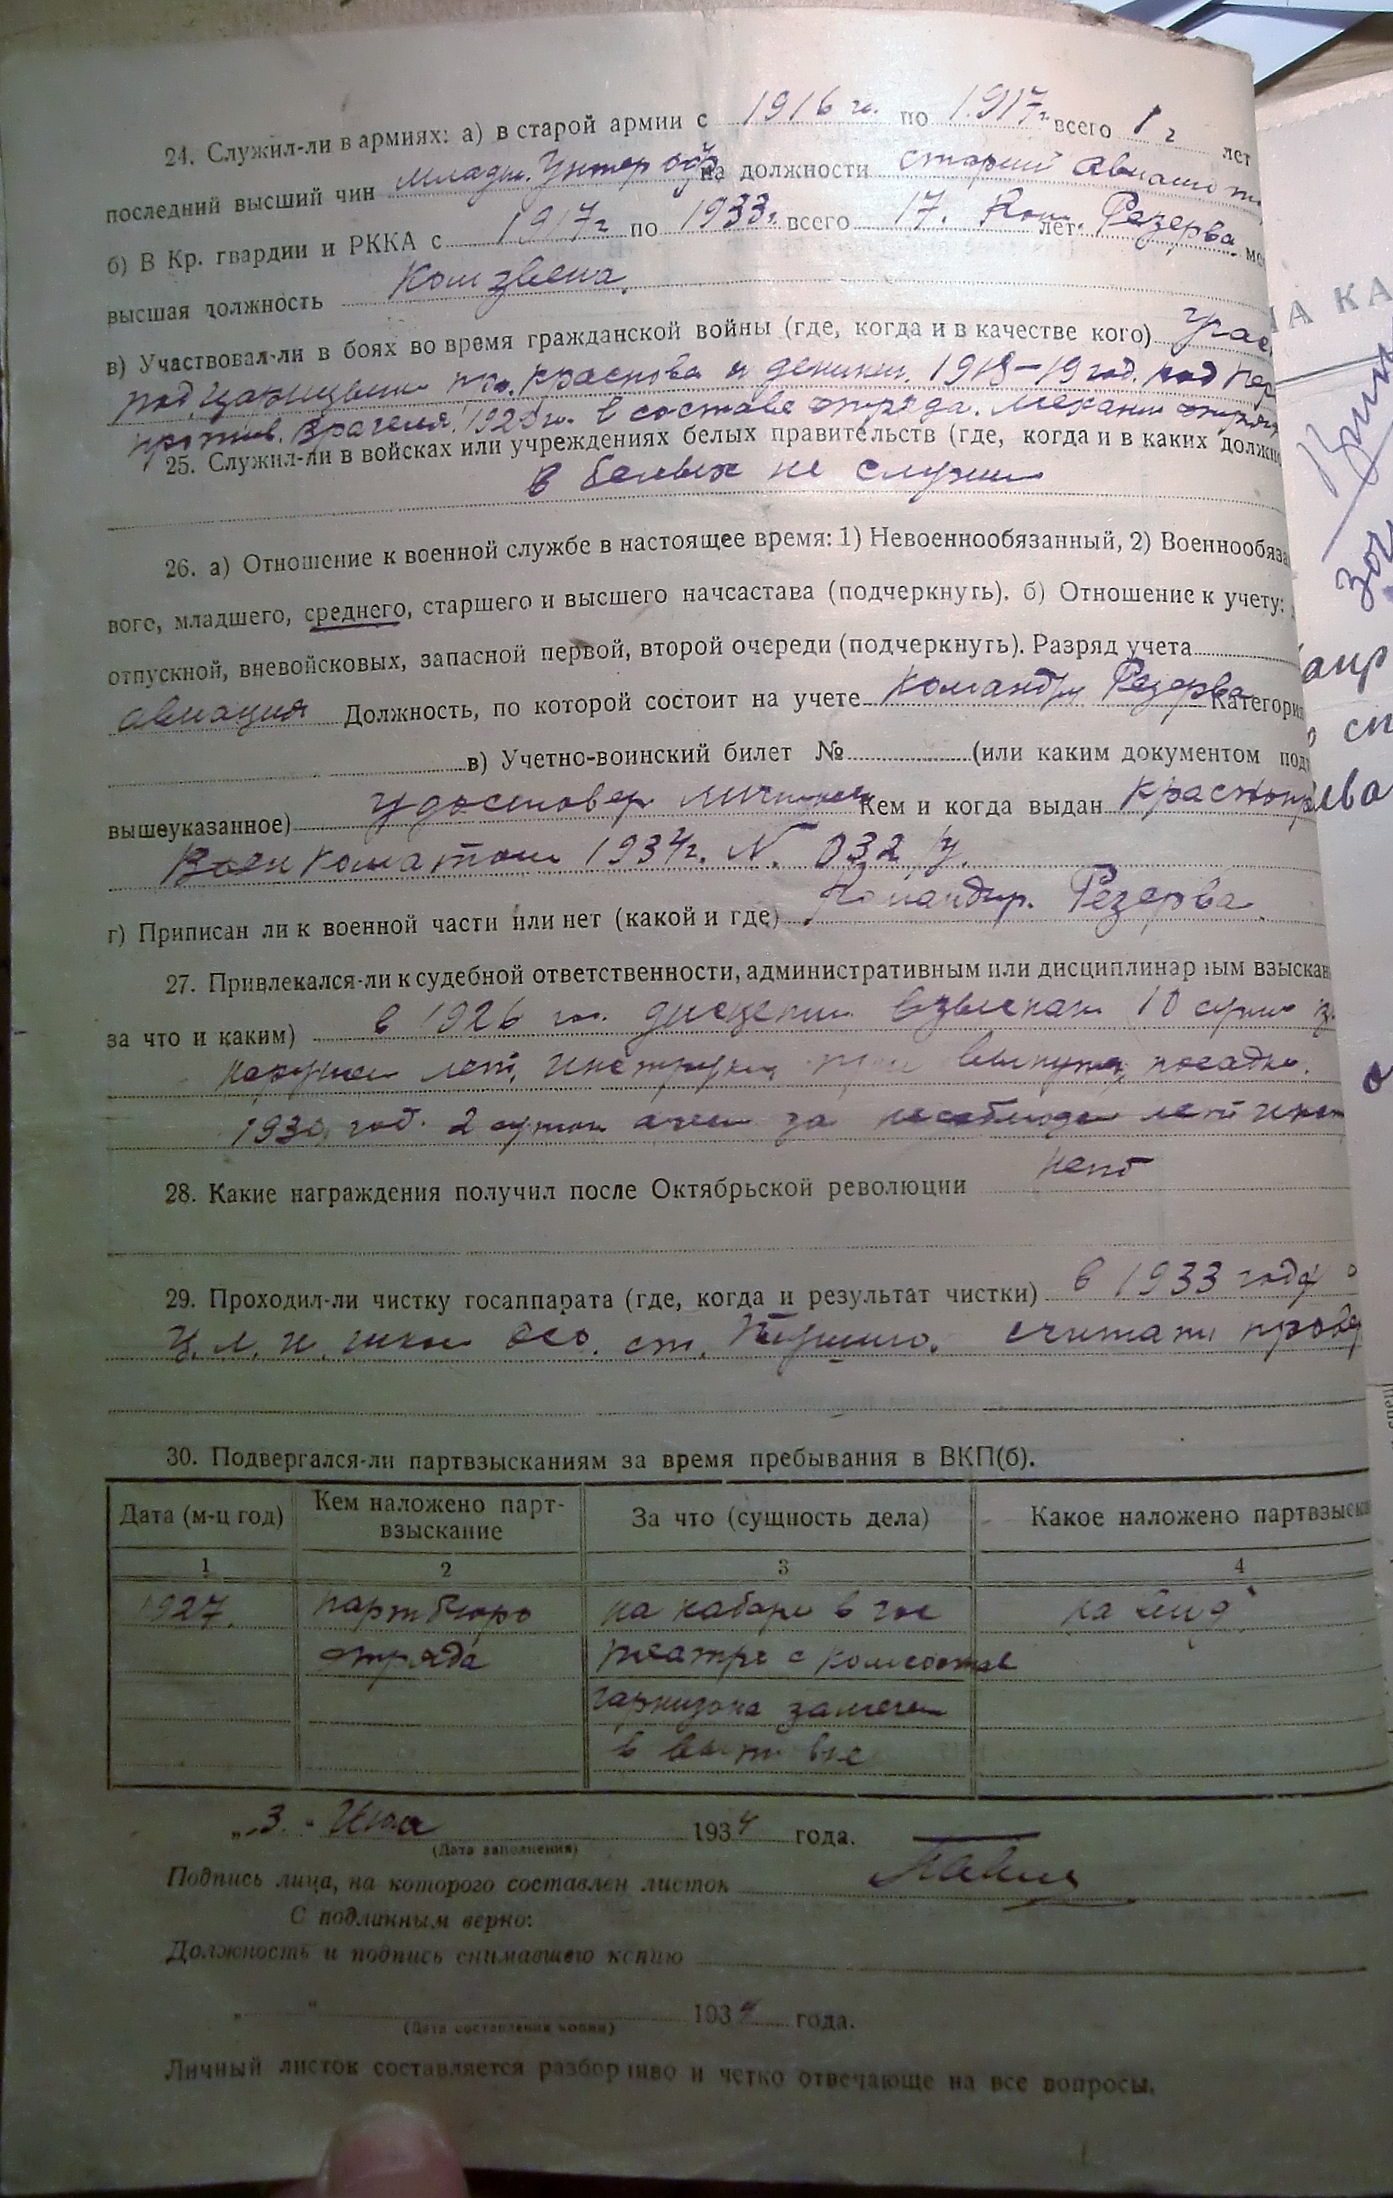 24. Служил-ли в армиях: а) в старой армии с 1916 г. по 1917 г. всего 1 г лет
последний высший чин младш. Унтер оф. на должности старший авиамот
б) В Кр. гвардии и РККА с 1917 г по 1933 г. всего 17. лет. Ком. Резерва.
высшая должность Комзвена.
в) Участвовал-ли в боях во время гражданской войны (где, когда и в качестве кого) Учас
под Царицыном пр. Краснова и деники. 1918-19 год. под Пер
против. Врангеля. в составе отряда. механик отряда
25. Служил-ли в войсках или учреждениях белых правительств (где, когда и в каких должно
В белых не служил
26. а) Отношение к военной службе в настоящее время: 1) Невоеннообязанный, 2) Военнообяза
вого, младшего, среднего, старшего и высшего начсастава (подчеркнуть). б) Отношение к учету:
отпускной, вневойсковых, запасной первой, второй очереди (подчеркнуть). Разряд учета
авиация Должность, по которой состоит на учете командир Резерва Категория
в) Учетно-воинский билет № (или каким документом подт
вышеуказанное) удостовер личности Кем и когда выдан краснопр
Военкоматом 1934 г. N. 032/у.
г) Приписан ли к военной части или нет (какой и где) Командир. Резерва.
27. Привлекался-ли к судебной ответственности, административным или дисциплинарным взыскан
за что и каким) в 1926 г. взыскан 10 суток
наруше лет. инструкц при посадке.
1930 год. 2 суток арест за несоблюден лет инст
28. Какие награждения получил после Октябрьской революции нет
29. Проходил-ли чистку госаппарата (где, когда и результат чистки) в 1933 году
ст. считать провер
30. Подвергался-ли партвзысканиям за время пребывания в ВКП(б).
Дата (м-ц год) Кем наложено парт-взыскание За что (сущность дела) Какое наложено партвзыска
1 2 3 4
1927. партбюро на в гос на вид
отряда театре с комсостав
гарнизона замечен
в
„3." Июля 1934 года.
(Дата заполнения)
Подпись лица, на которого составлен листок
С подлинным верно:
Должность и подпись снимавшего копию
„ " 1934 года.
(Дата составления копии)
Личный листок составляется разборчиво и четко отвечающе на все вопросы.